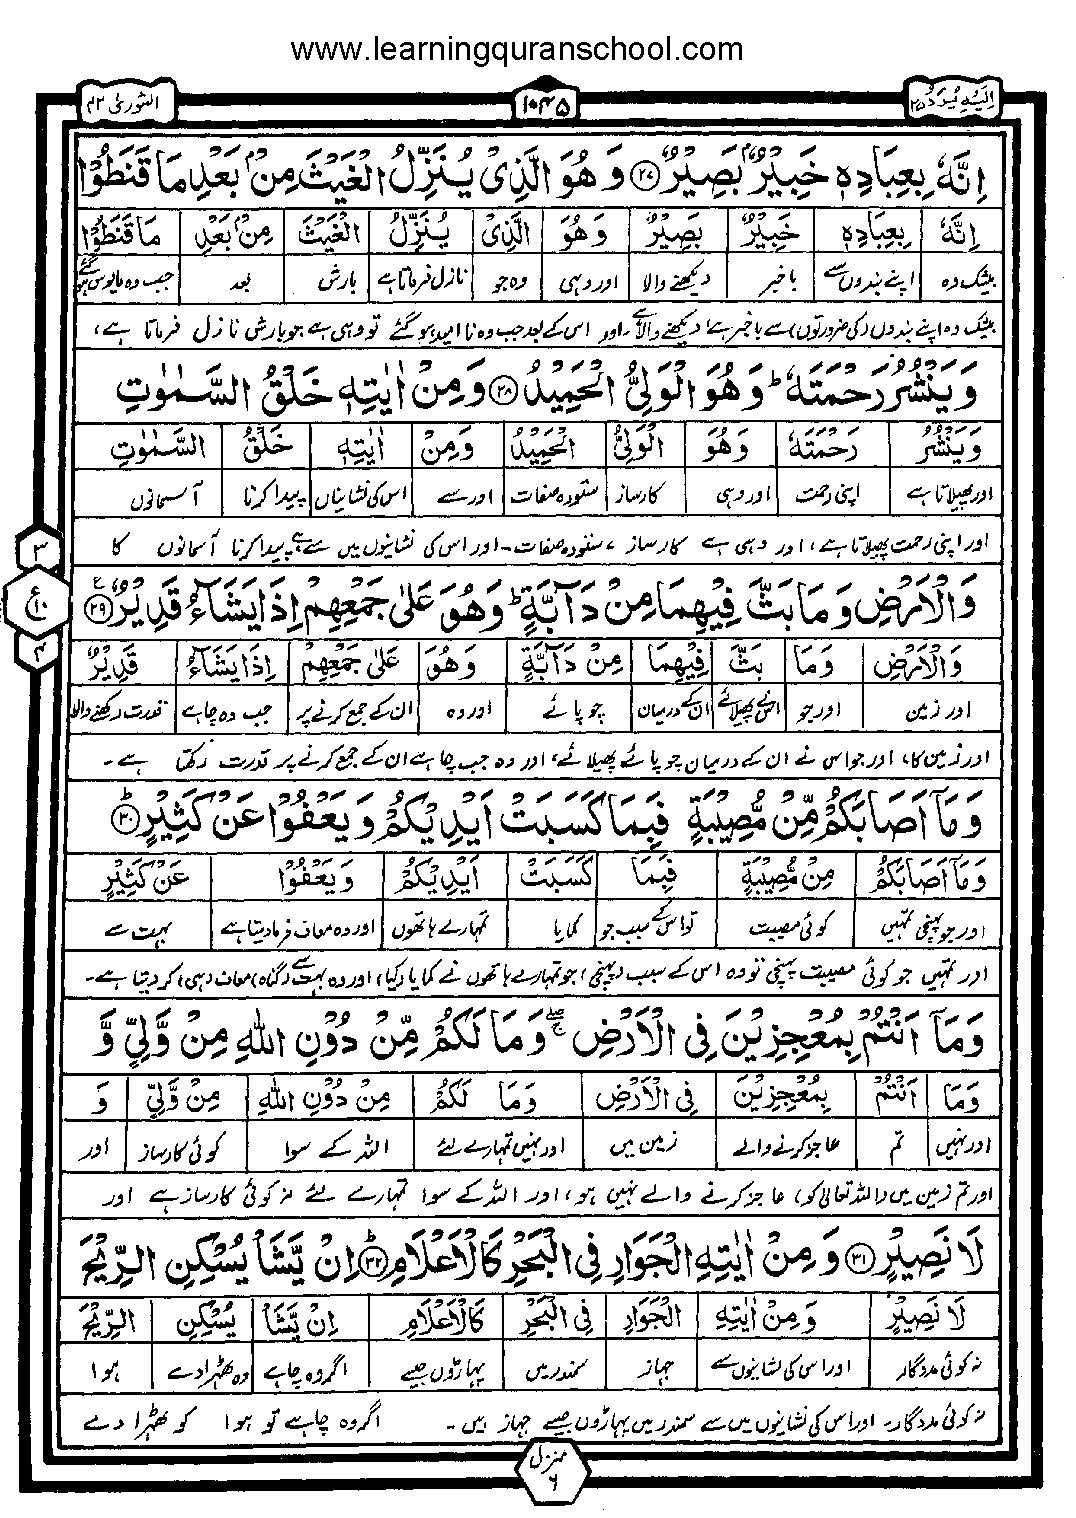 www.learningquranschool.com
اليه يرد ٢٥
١٠٤٥
الشورىٰ ٤٢
اِنَّهٗ بِعِبَادِهٖ خَبِيْرٌۢ بَصِيْرٌ ﴿۲۷﴾ وَهُوَ الَّذِىْ يُنَزِّلُ الْغَيْثَ مِنْۢ بَعْدِ مَا قَنَطُوْا
اِنَّهٗ بِعِبَادِهٖ خَبِيْرٌۢ بَصِيْرٌ وَهُوَ الَّذِىْ يُنَزِّلُ الْغَيْثَ مِنْۢ بَعْدِ مَا قَنَطُوْا
بیشک وہ اپنے بندوں سے باخبر دیکھنے والا اور وہی وہ جو نازل فرماتا ہے بارش بعد جب وہ مایوس ہوگئے
بیشک وہ اپنے بندوں (کی ضرورتوں) سے باخبر ہے، دیکھنے والا ہے۔ اور اس کے بعد جب وہ نا امید ہو گئے تو وہی ہے جو بارش نازل فرماتا ہے،
وَيَنْشُرُ رَحْمَتَهٗ ؕ وَهُوَ الْوَلِىُّ الْحَمِيْدُ ﴿۲۸﴾ وَمِنْ اٰيٰتِهٖ خَلْقُ السَّمٰوٰتِ
وَيَنْشُرُ رَحْمَتَهٗ وَهُوَ الْوَلِىُّ الْحَمِيْدُ وَمِنْ اٰيٰتِهٖ خَلْقُ السَّمٰوٰتِ
اور پھیلاتا ہے اپنی رحمت اور وہی کارساز ستودہ صفات اور سے اس کی نشانیاں پیدا کرنا آسمانوں
اور اپنی رحمت پھیلاتا ہے، اور وہی ہے کارساز، ستودہ صفات۔ اور اس کی نشانیوں میں سے ہے پیدا کرنا آسمانوں کا
۳
ع
۱۰
۴
وَالْاَرْضِ وَمَا بَثَّ فِيْهِمَا مِنْ دَآبَّةٍ ؕ وَهُوَ عَلٰى جَمْعِهِمْ اِذَا يَشَآءُ قَدِيْرٌ ﴿۲۹﴾
وَالْاَرْضِ وَمَا بَثَّ فِيْهِمَا مِنْ دَآبَّةٍ وَهُوَ عَلٰى جَمْعِهِمْ اِذَا يَشَآءُ قَدِيْرٌ
اور زمین اور جو اس نے پھیلائے ان کے درمیان چوپائے اور وہ ان کے جمع کرنے پر جب وہ چاہے قدرت رکھنے والا
اور زمین کا، اور جو اس نے ان کے درمیان چوپائے پھیلائے، اور وہ جب چاہے ان کے جمع کرنے پر قدرت رکھتا ہے۔
وَمَآ اَصَابَكُمْ مِّنْ مُّصِيْبَةٍ فَبِمَا كَسَبَتْ اَيْدِيْكُمْ وَيَعْفُوْا عَنْ كَثِيْرٍ ﴿۳۰﴾ؕ
وَمَآ اَصَابَكُمْ مِنْ مُّصِيْبَةٍ فَبِمَا كَسَبَتْ اَيْدِيْكُمْ وَيَعْفُوْا عَنْ كَثِيْرٍ
اور جو پہنچی تمہیں کوئی مصیبت تو اس کے سبب جو کمایا تمہارے ہاتھوں اور وہ معاف فرما دیتا ہے بہت سے
اور تمہیں جو کوئی مصیبت پہنچی تو وہ اس کے سبب (پہنچی) جو تمہارے ہاتھوں نے کمایا (کیا) اور وہ بہت سے (گناہ) معاف (بھی) کر دیتا ہے۔
وَمَآ اَنْتُمْ بِمُعْجِزِيْنَ فِى الْاَرْضِ ۖۚ وَمَا لَكُمْ مِّنْ دُوْنِ اللّٰهِ مِنْ وَّلِىٍّ وَّ
وَمَآ اَنْتُمْ بِمُعْجِزِيْنَ فِى الْاَرْضِ وَمَا لَكُمْ مِنْ دُوْنِ اللّٰهِ مِنْ وَّلِىٍّ وَ
اور نہیں تم عاجز کرنے والے زمین میں اور نہیں تمہارے لئے اللہ کے سوا کوئی کارساز اور
اور تم زمین میں (اللہ تعالیٰ کو) عاجز کرنے والے نہیں ہو، اور اللہ کے سوا تمہارے لئے نہ کوئی کارساز ہے اور
لَا نَصِيْرٍ ﴿۳۱﴾ وَمِنْ اٰيٰتِهِ الْجَوَارِ فِى الْبَحْرِ كَالْاَعْلَامِ ﴿۳۲﴾ؕ اِنْ يَّشَاْ يُسْكِنِ الرِّيْحَ
لَا نَصِيْرٍ وَمِنْ اٰيٰتِهِ الْجَوَارِ فِى الْبَحْرِ كَالْاَعْلَامِ اِنْ يَّشَاْ يُسْكِنِ الرِّيْحَ
نہ کوئی مددگار اور اس کی نشانیوں سے جہاز سمندر میں پہاڑوں جیسے اگر وہ چاہے وہ ٹھہرا دے ہوا
نہ کوئی مددگار۔ اور اس کی نشانیوں میں سے سمندر میں پہاڑوں جیسے جہاز ہیں۔ اگر وہ چاہے تو ہوا کو ٹھہرا دے
منزل ۶